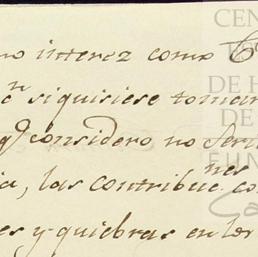 mo interez como
cn siquisiese tomar
qe considero no sera
ia, las contribucnes co
es y quiebras en los
CEN
ES
DE H
DE
FUN
Ca